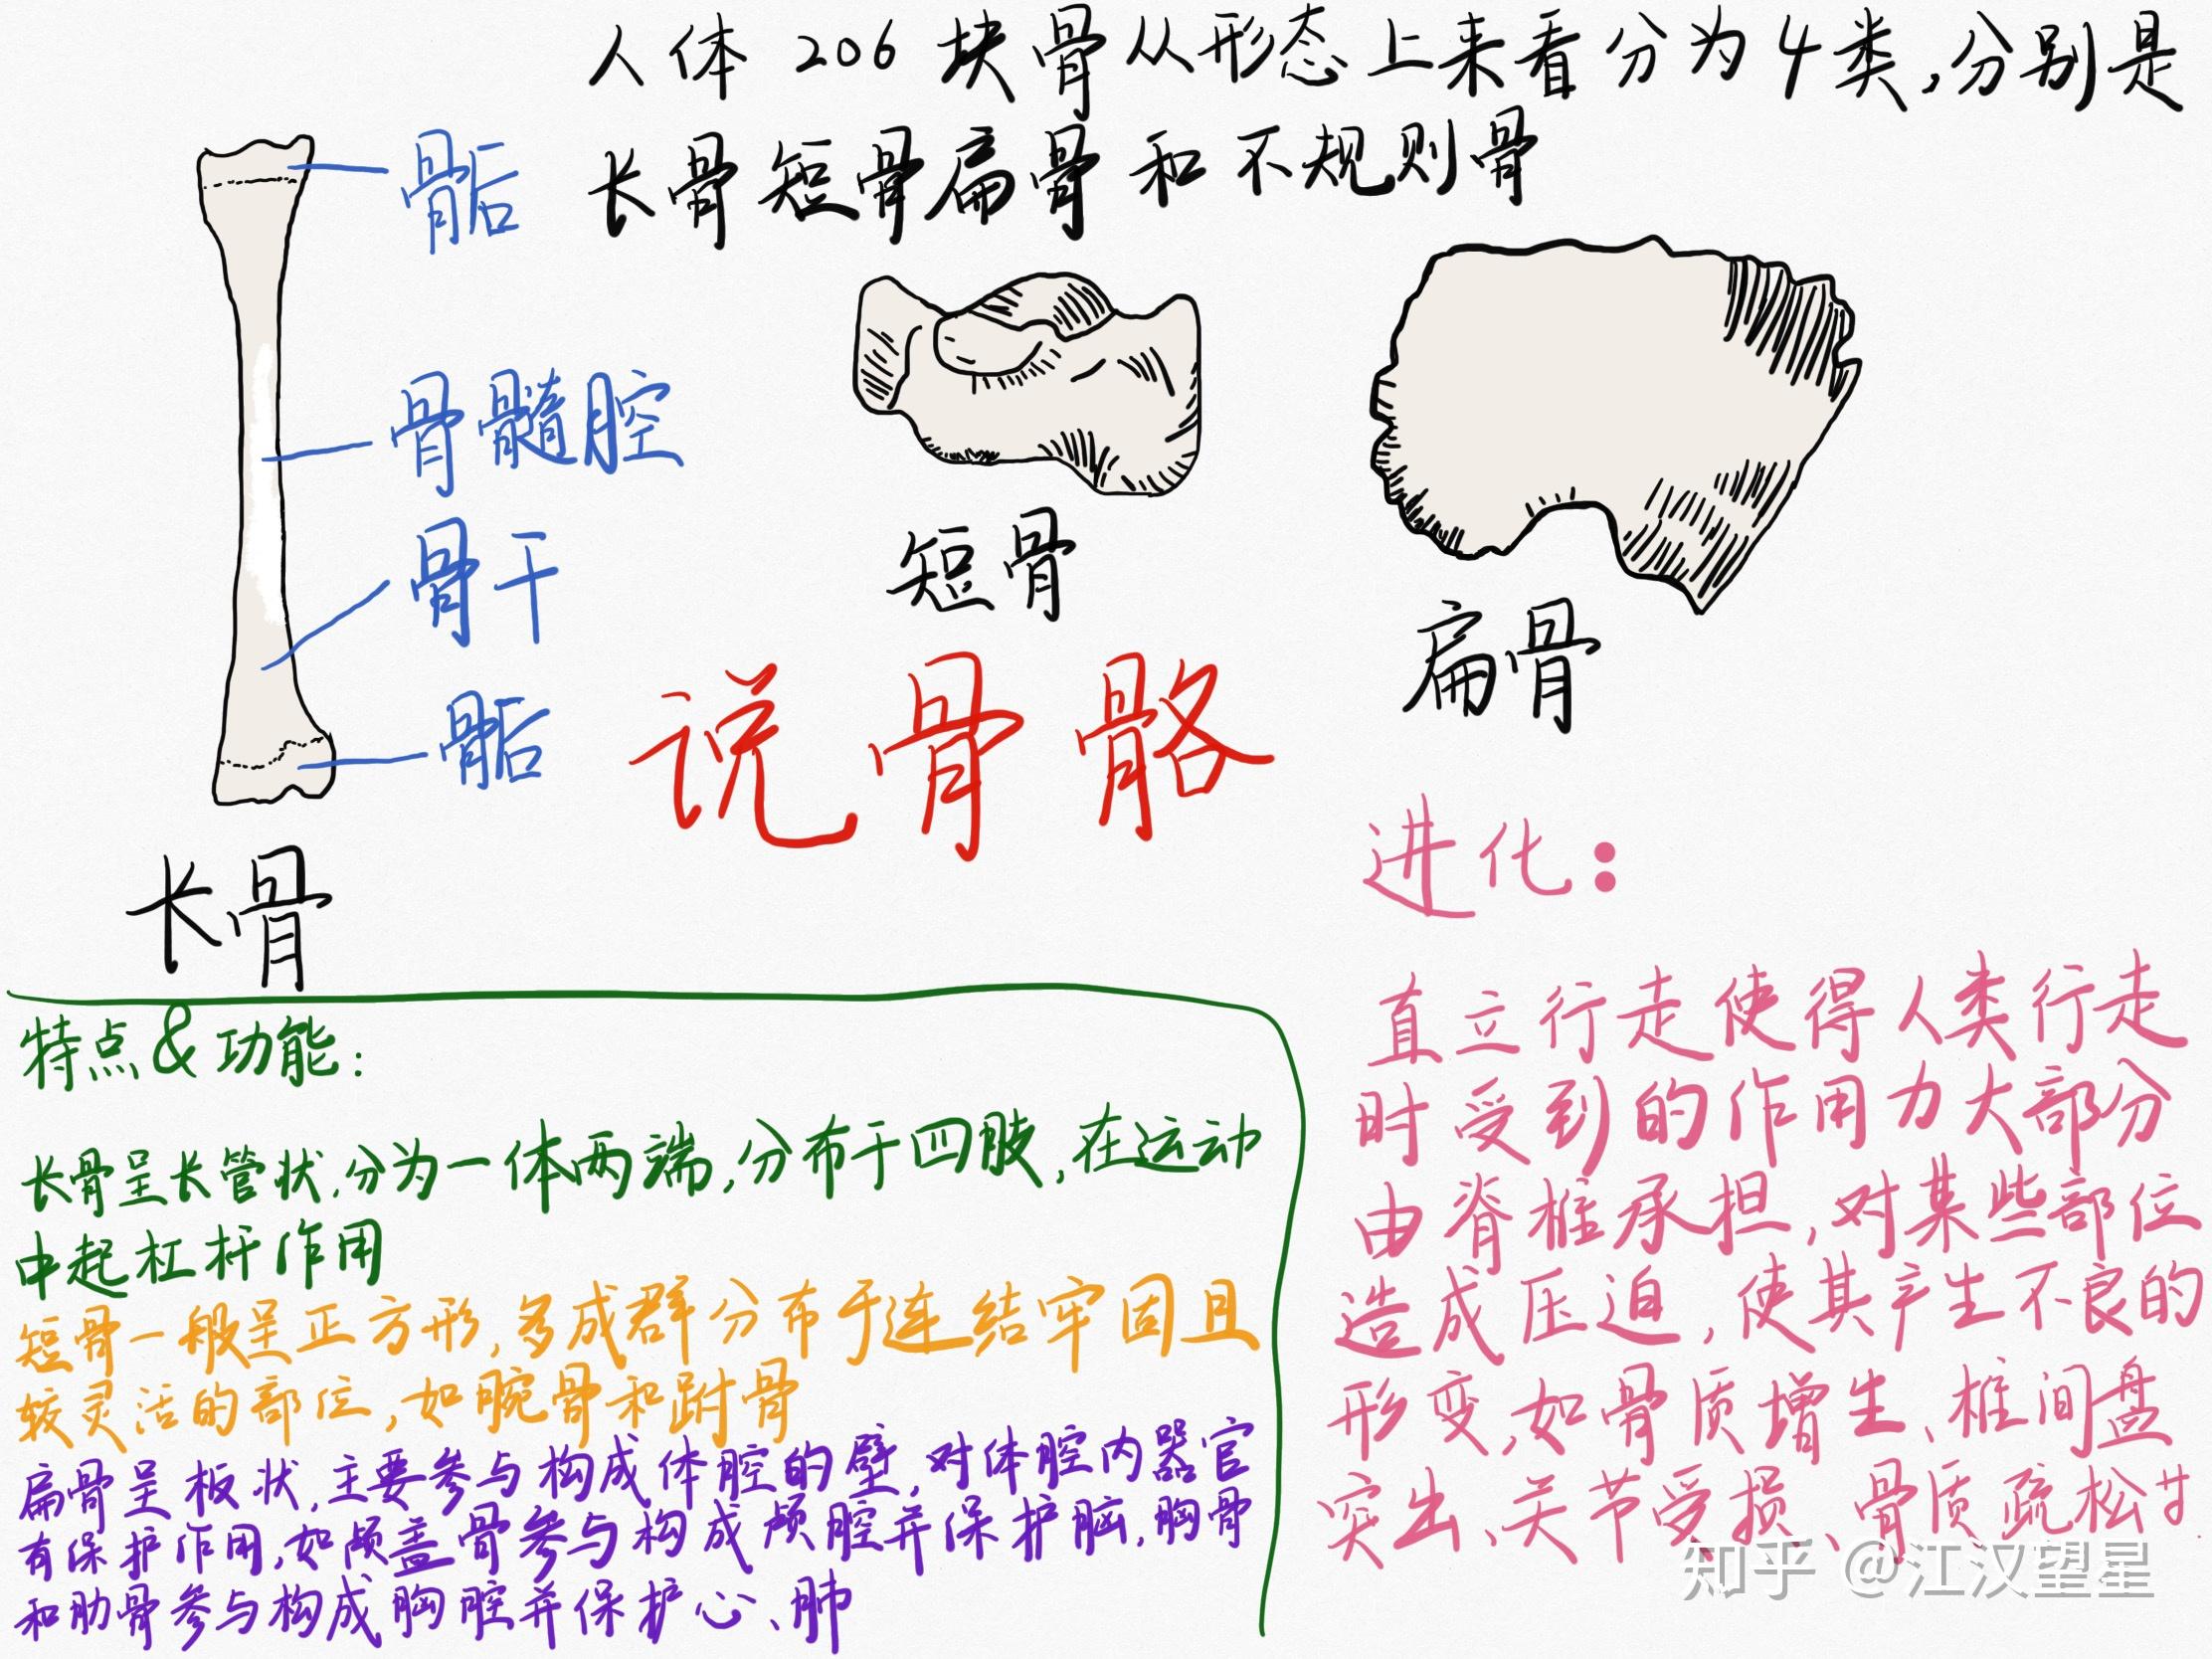 人体 206 块骨从形态上来看分为4类,分别是
长骨短骨扁骨和不规则骨
骺
骨髓腔
骨干
骺
长骨
短骨
扁骨
说骨骼
特点&功能:
长骨呈长管状,分为一体两端,分布于四肢,在运动
中起杠杆作用
短骨一般呈正方形,多成群分布于连结牢固且
较灵活的部位,如腕骨和跗骨
扁骨呈板状,主要参与构成体腔的壁,对体腔内器官
有保护作用,如颅盖骨参与构成颅腔并保护脑,胸骨
和肋骨参与构成胸腔并保护心、肺
进化:
直立行走使得人类行走
时受到的作用力大部分
由脊椎承担,对某些部位
造成压迫,使其产生不良的
形变,如骨质增生、椎间盘
突出、关节受损、骨质疏松
知乎 @江汉望星